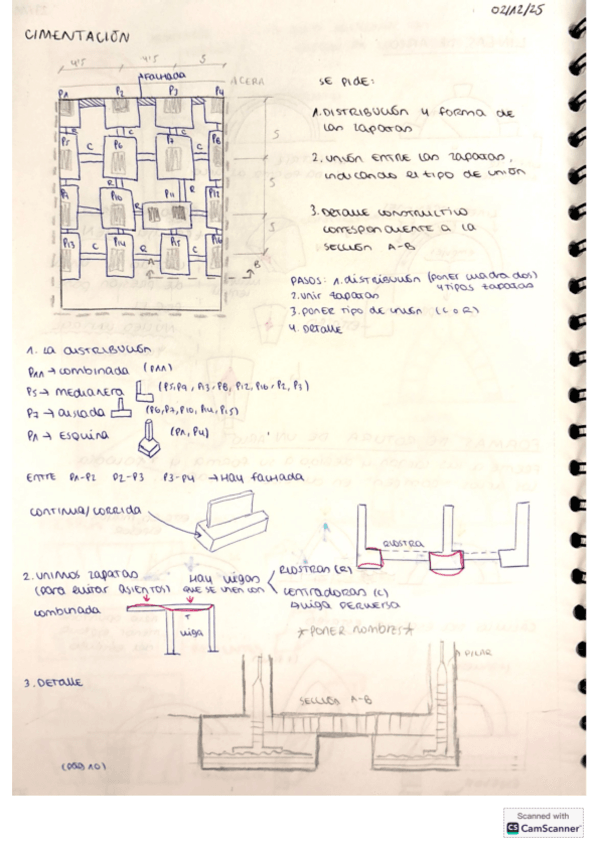 02/12/25
CIMENTACIÓN
4'5 4'5 5
FACHADA
ACERA
P1 P2 P3 P4
R R
5
P5 C P6 P7 C P8
R R
5
P9 P10 R P11 P12
5
P13 C P14 R P15 C P16
A B
SE PIDE:
1. DISTRIBUCIÓN Y FORMA DE
LAS ZAPATAS
2. UNIÓN ENTRE LAS ZAPATAS,
INDICANDO EL TIPO DE UNIÓN
3. DETALLE CONSTRUCTIVO
CORRESPONDIENTE A LA
SECCIÓN A-B
PASOS: 1. DISTRIBUCIÓN (PONER CUADRADOS)
Y TIPOS ZAPATAS
2. UNIR ZAPATAS
3. PONER TIPO DE UNIÓN (C O R)
4. DETALLE
1. LA DISTRIBUCIÓN
P11 → COMBINADA (P11)
P5 → MEDIANERA (P5, P9, P13, P8, P12, P16, P2, P3)
P7 → AISLADA (P6, P7, P10, P14, P15)
P1 → ESQUINA (P1, P4)
ENTRE P1-P2 P2-P3 P3-P4 → HAY FACHADA
CONTINUA/CORRIDA
RIOSTRA
2. UNIMOS ZAPATAS
(PARA EVITAR ASIENTOS)
HAY VIGAS
QUE SE UNEN CON
RIOSTRAS (R)
CENTRADORAS (C)
COMBINADA
VIGA
*PONER NOMBRES*
3. DETALLE
PILAR
SECCIÓN A-B
(PÁG 10)
Scanned with
CS CamScanner